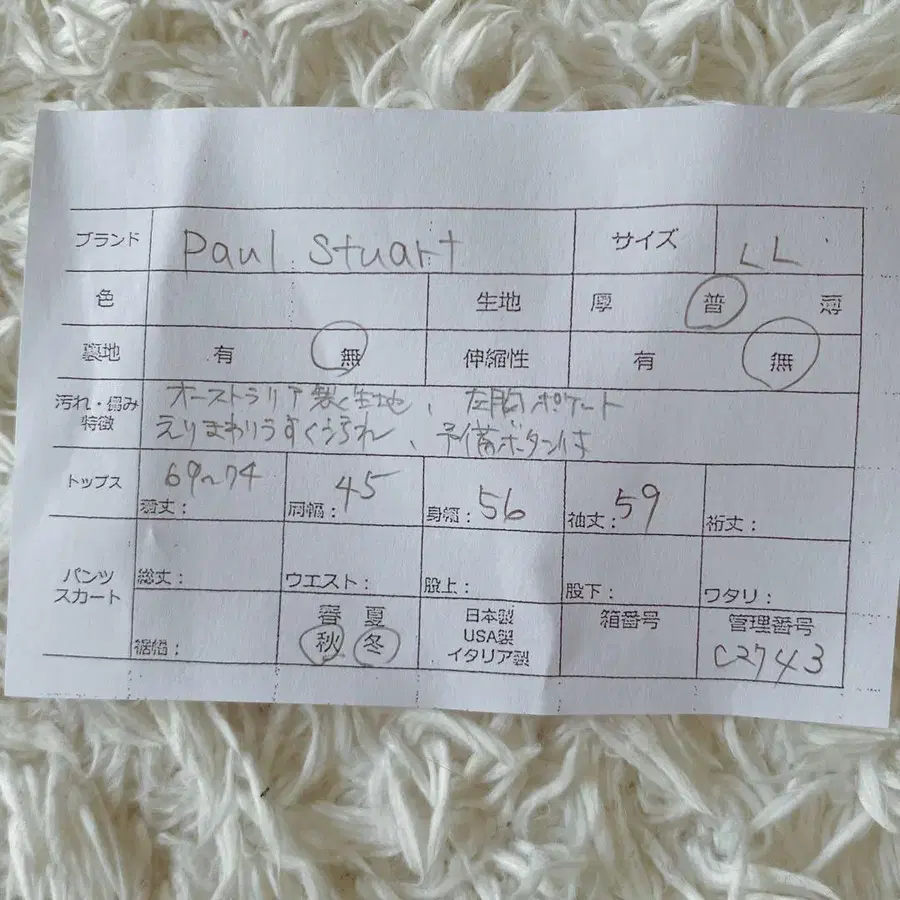 ブランド Paul Stuart サイズ LL
色 生地 厚 普 薄
裏地 有 無 伸縮性 有 無
汚れ・傷み
特徴
オーストラリア製生地、左胸ポケット
えりまわりうすくうちれ、予備ボタン付
トップス 69〜74 45 56 59
着丈: 肩幅: 身幅: 袖丈: 裄丈:
パンツ
スカート
総丈: ウエスト: 股上: 股下: ワタリ:
裾幅:
春 夏
秋 冬
日本製
USA製
イタリア製
箱番号
管理番号
C2743